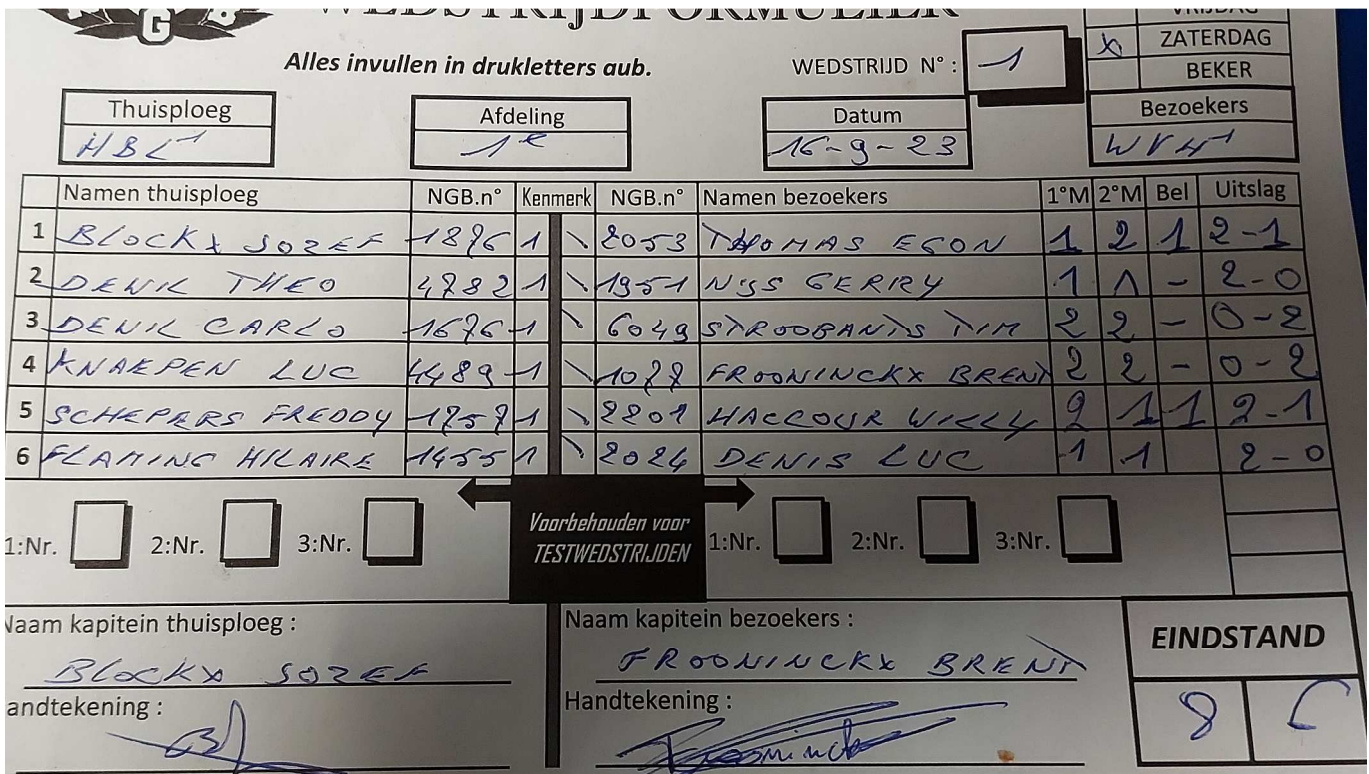 G B
WEDSTRIJDFORMULIER
VRIJDAG
Alles invullen in drukletters aub.
WEDSTRIJD N° : 1
X ZATERDAG
BEKER
Thuisploeg Afdeling Datum Bezoekers
HBL1 1e 16-9-23 WVH1
Namen thuisploeg NGB.n° Kenmerk NGB.n° Namen bezoekers 1°M 2°M Bel Uitslag
1 BLOCKX JOZEF 1876 1 \ 2053 THOMAS EGON 1 2 1 2-1
2 DENIL THEO 4782 1 \ 1951 NIJS GERRY 1 1 - 2-0
3 DENIL CARLO 1676 1 \ 6049 STROOBANTS TIM 2 2 - 0-2
4 KNAEPEN LUC 4489 1 \ 1077 FROONINCKX BRENT 2 2 - 0-2
5 SCHEPERS FREDDY 1757 1 \ 2201 HACCOUR WILLY 2 1 1 2-1
6 FLAMING HILAIRE 1455 1 \ 2024 DENIS LUC 1 1 2-0
1:Nr. 2:Nr. 3:Nr. Voorbehouden voor TESTWEDSTRIJDEN 1:Nr. 2:Nr. 3:Nr.
Naam kapitein thuisploeg : Naam kapitein bezoekers : EINDSTAND
BLOCKX JOZEF FROONINCKX BRENT
andtekening : Handtekening : 8 6
Frooninckx